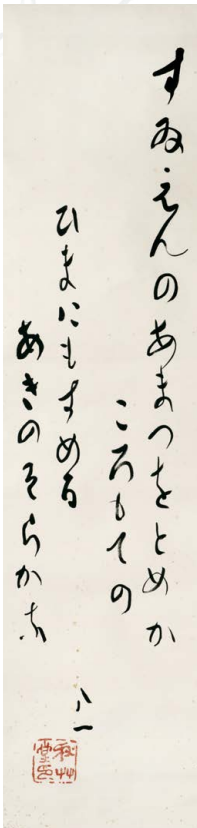 すゐえんのあまつをとめか
ころもての
ひまにもすめる
あきのそらかな
八一
秋艸堂印